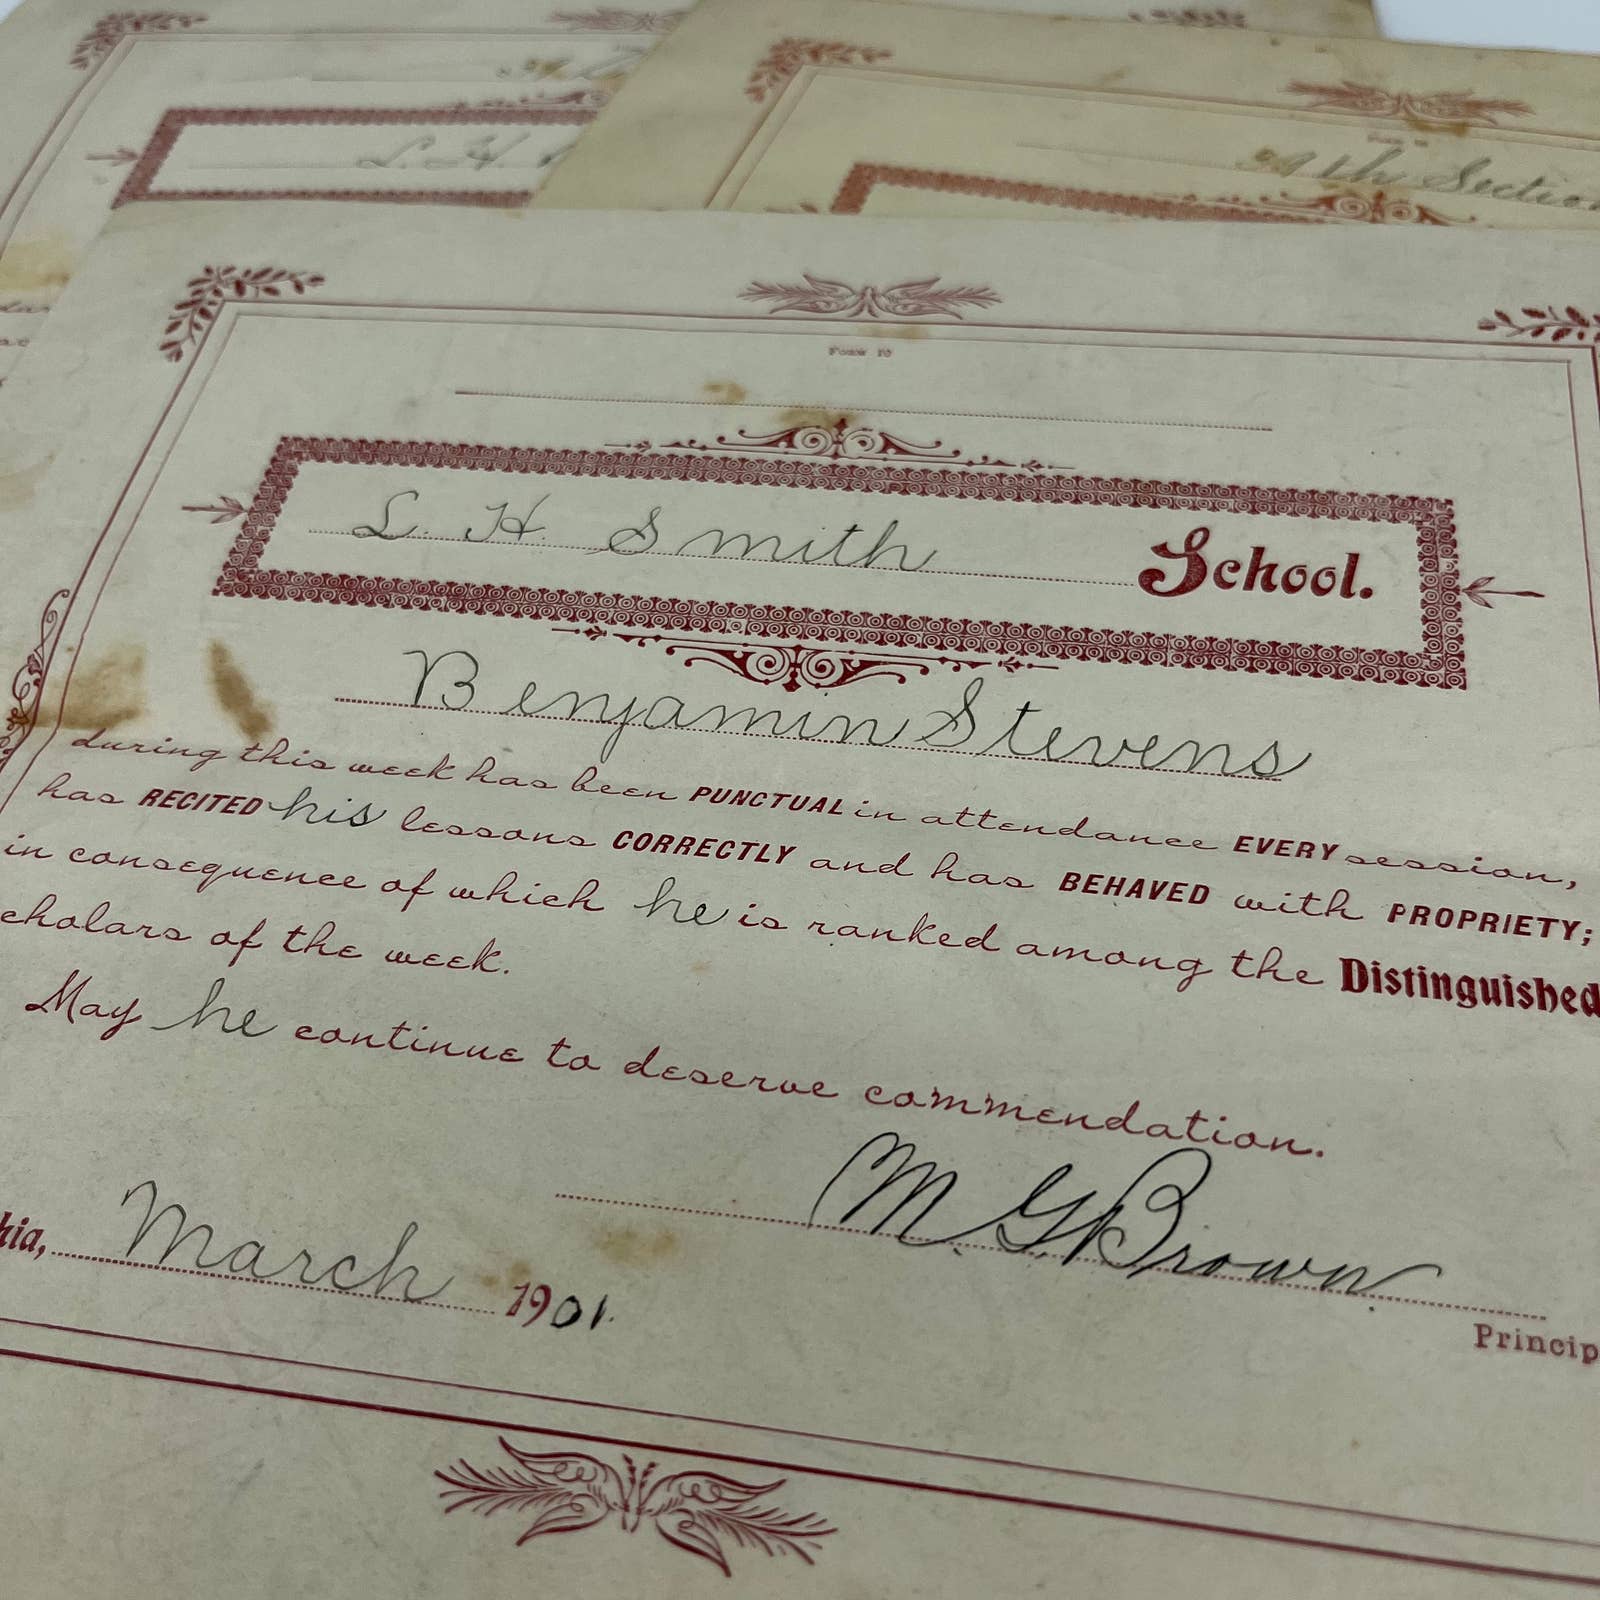 L. H.
29th Section
Form 10
L. H. Smith School.
Benjamin Stevens
during this week has been PUNCTUAL in attendance EVERY session,
has RECITED his lessons CORRECTLY and has BEHAVED with PROPRIETY;
in consequence of which he is ranked among the Distinguished
cholars of the week.
May he continue to deserve commendation.
M. G. Brown.
hia, March 1901.
Princip